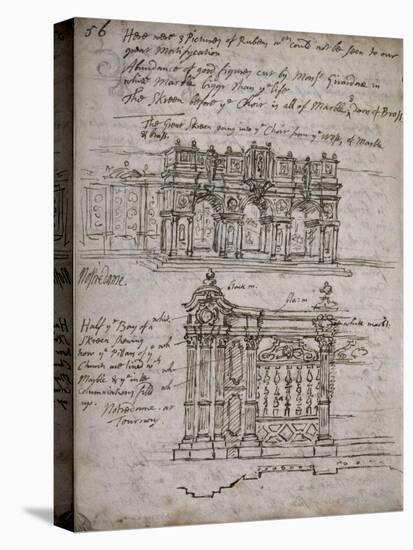 56
Here were 3 Pictures of Rubens wch could not be seen to our
great Mortification
Abundance of good figures cut by Monsr Girardone in
white Marble bigger than ye life
The Skreen before ye Choir is all of Marble 3 doors of Brass
The Great Skreen going into ye Choir from ye West, of Marble
& Brass.
Notredame.
black m.
black m
white marbl:
Half ye Bay of a
Skreen shewing
how ye Pillars of ye
Church are lined wth
Marble & ye
up.
Notredame at
Tournay
whit
wh
wh
wh
wh